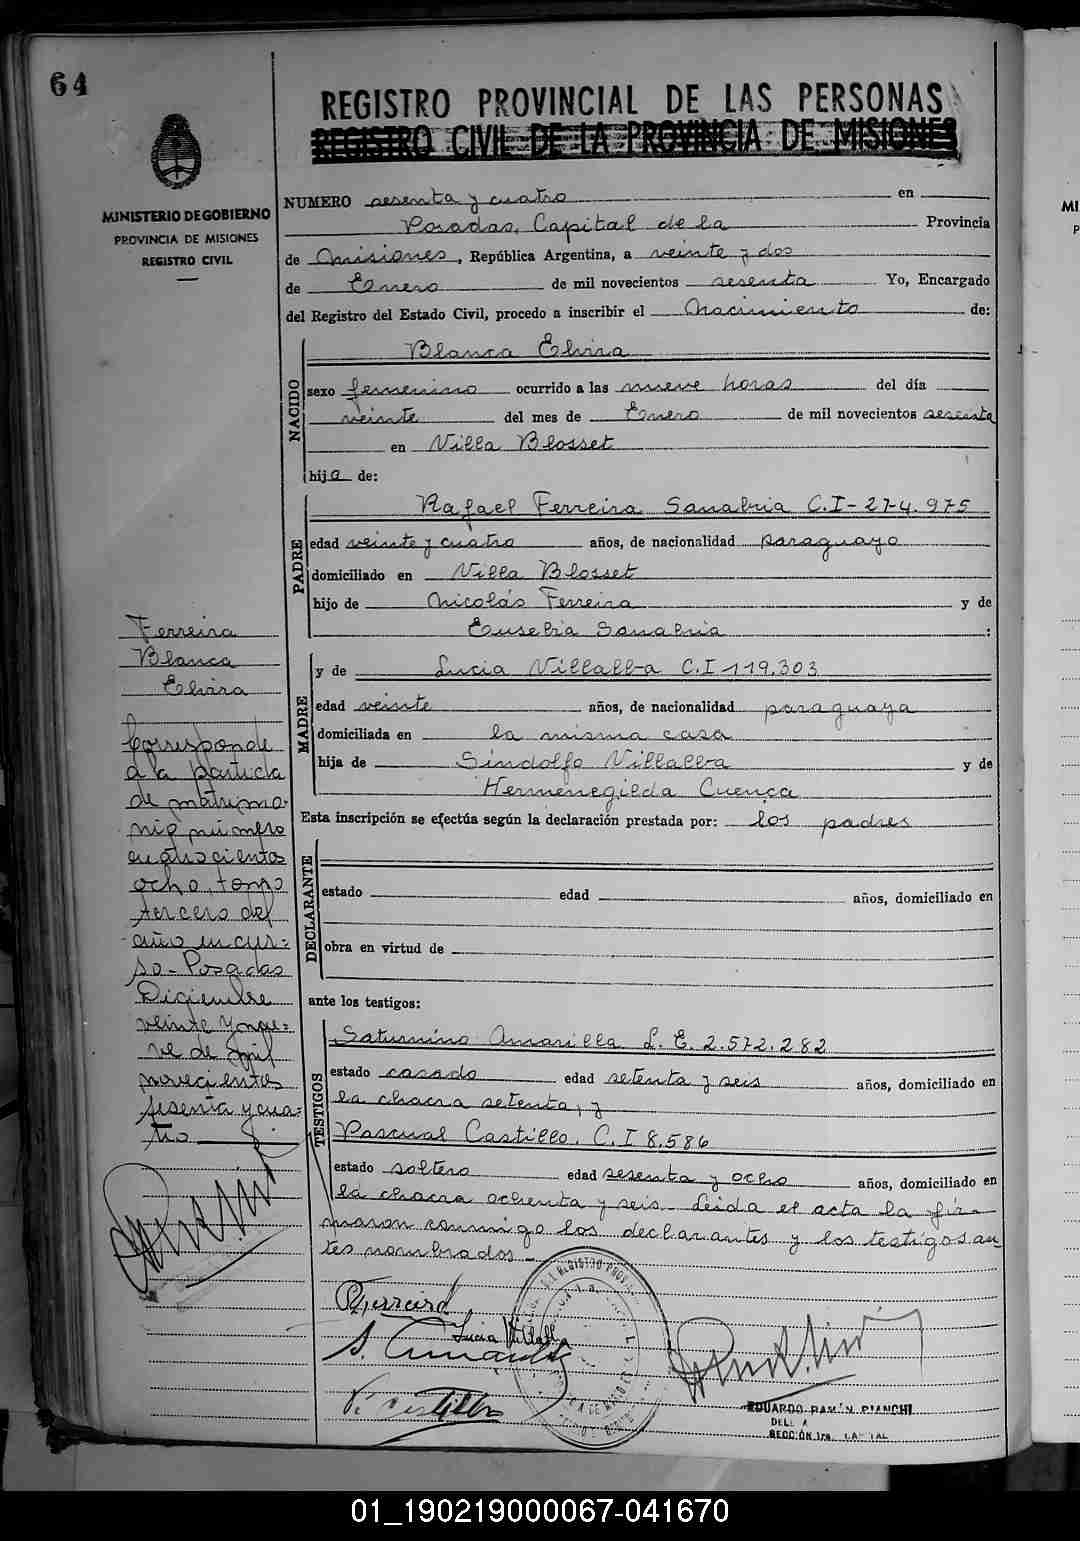 64
REGISTRO PROVINCIAL DE LAS PERSONAS
REGISTRO CIVIL DE LA PROVINCIA DE MISIONES
MINISTERIO DE GOBIERNO
PROVINCIA DE MISIONES
REGISTRO CIVIL
NUMERO sesenta y cuatro en
Posadas, Capital de la Provincia
de Misiones, República Argentina, a veinte y dos
de Enero de mil novecientos sesenta Yo, Encargado
del Registro del Estado Civil, procedo a inscribir el Nacimiento de:
NACIDO
Blanca Elvira
sexo femenino ocurrido a las nueve horas del día
veinte del mes de Enero de mil novecientos sesenta
en Villa Blosset
hija de:
PADRE
Rafael Ferreira Sanabria C.I-274.975
edad veinte y cuatro años, de nacionalidad paraguayo
domiciliado en Villa Blosset
hijo de Nicolás Ferreira y de
Eusebia Sanabria :
MADRE
y de Lucia Villalba C.I 119.303
edad veinte años, de nacionalidad paraguaya
domiciliada en la misma casa
hija de Sindolfo Villalba y de
Hermenegilda Cuenca
Esta inscripción se efectúa según la declaración prestada por: los padres
DECLARANTE
estado edad años, domiciliado en
obra en virtud de
ante los testigos:
TESTIGOS
Saturnino Amarilla L.E. 2.572.282
estado casado edad setenta y seis años, domiciliado en
la chacra setenta, y
Pascual Castillo. C.I 8.586
estado soltero edad sesenta y ocho años, domiciliado en
la chacra ochenta y seis. Leida el acta la fir-
maron conmigo los declarantes y los testigos an-
tes nombrados.-
Ferreira
Blanca
Elvira
Corresponde
a la partida
de matrimo-
nio número
cuatrocientos
ocho, tomo
tercero del
año en cur-
so- Posadas
Diciembre
veinte y nue-
ve de mil
novecientos
sesenta y cua-
tro
R Ferreira
Lucia Villalba
S. Amarilla
P. Castillo
EDUARDO RAMÓN BIANCHI
SECCIÓN 1ra. CAPITAL
01_190219000067-041670